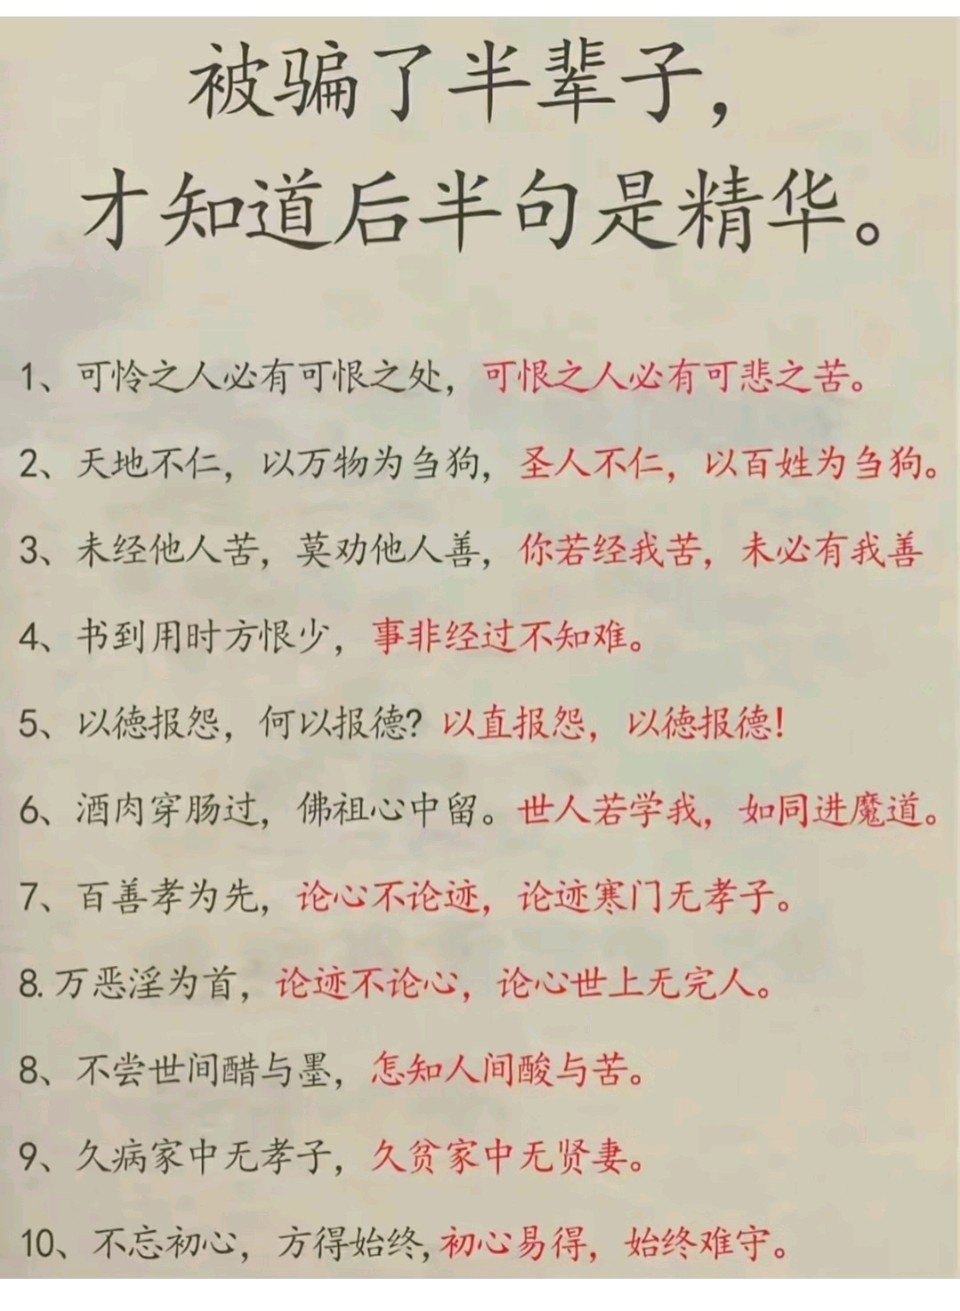 被骗了半辈子，
才知道后半句是精华。
1、可怜之人必有可恨之处，可恨之人必有可悲之苦。
2、天地不仁，以万物为刍狗，圣人不仁，以百姓为刍狗。
3、未经他人苦，莫劝他人善，你若经我苦，未必有我善
4、书到用时方恨少，事非经过不知难。
5、以德报怨，何以报德？以直报怨，以德报德！
6、酒肉穿肠过，佛祖心中留。世人若学我，如同进魔道。
7、百善孝为先，论心不论迹，论迹寒门无孝子。
8. 万恶淫为首，论迹不论心，论心世上无完人。
8、不尝世间醋与墨，怎知人间酸与苦。
9、久病家中无孝子，久贫家中无贤妻。
10、不忘初心，方得始终,初心易得，始终难守。